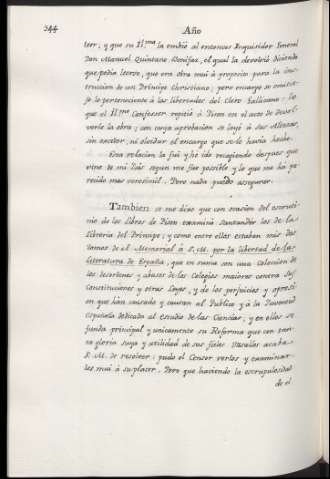 344
Año
leer, y que su Il.ma la embió al entonces Inquisidor General
Don Manuel Quintano Bonifaz, el qual la devolvió diciendo
que podia leerse, que era obra mui à proposito para la ins-
truccion de un Principe Christiano; pero encargo se omitie-
se lo perteneciente à las libertades del Clero Gallicano: lo
que el Il.mo Confesor repitió à Pison en el acto de devol-
verle la obra; con cuya aprobacion se leyó à sus Altezas,
sin omitir, ni olvidar el encargo que se le havia hecho.
Esta relacion la fui y he ido recogiendo despues que
vine de mi Pais segun me fue posible y lo que me ha pa-
recido mas verosimil. Pero nada puedo asegurar.
Tambien se me dijo que con ocasion del escruti-
nio de los libros de Pison examinó Santander los de la
libreria del Principe; y como entre ellos estaban mis dos
tomos de el Memorial à S. M. por la libertad de la
literatura de España, que en suma son una Coleccion de
los desordenes y abusos de los Colegios maiores contra sus
Constituciones y otras Leyes, y de los perjuicios y opresi-
on que han causado y causan al Publico y à la Juventud
Española dedicada al estudio de las Ciencias; y en ellos se
funda principal y unicamente su Reforma que con tan-
ta gloria suya y utilidad de sus fieles Vasallos acaba
S. M. de resolver: pudo el Censor verlos y examinar-
les mui à su placer. Pero que haciendo la escrupulosidad
de el